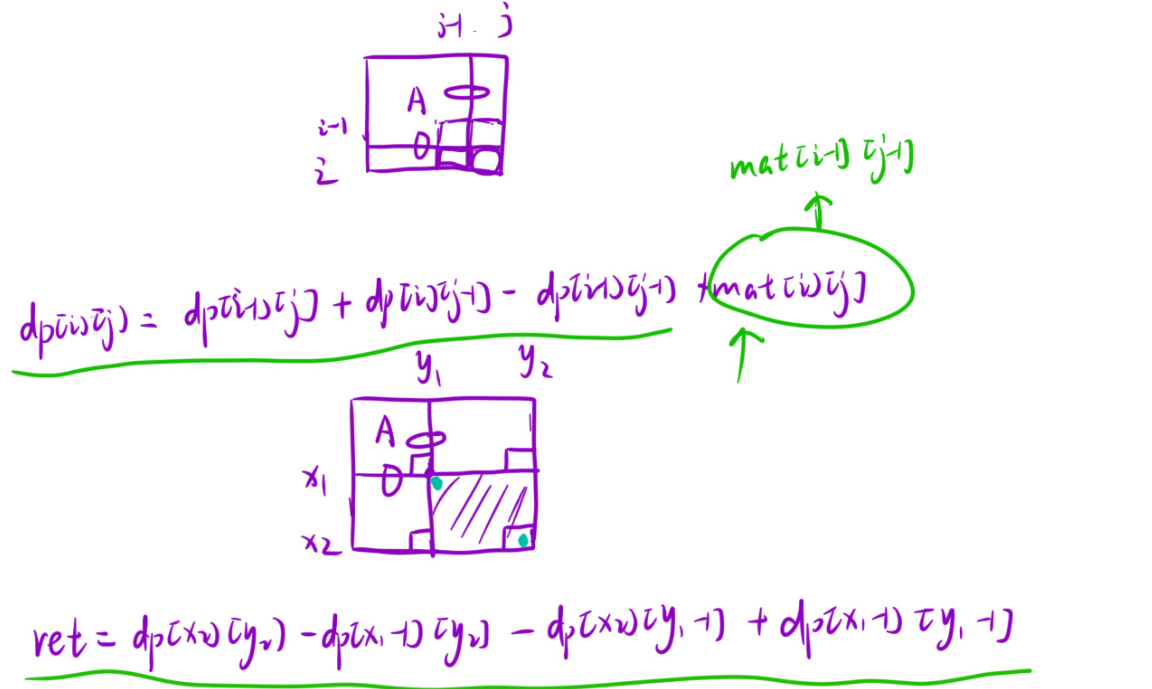 j-1 j
A
i-1
i
mat[i-1][j-1]
dp[i][j] = dp[i-1][j] + dp[i][j-1] - dp[i-1][j-1] + mat[i][j]
y₁ y₂
A
x₁
x₂
ret = dp[x₂][y₂] - dp[x₁-1][y₂] - dp[x₂][y₁-1] + dp[x₁-1][y₁-1]